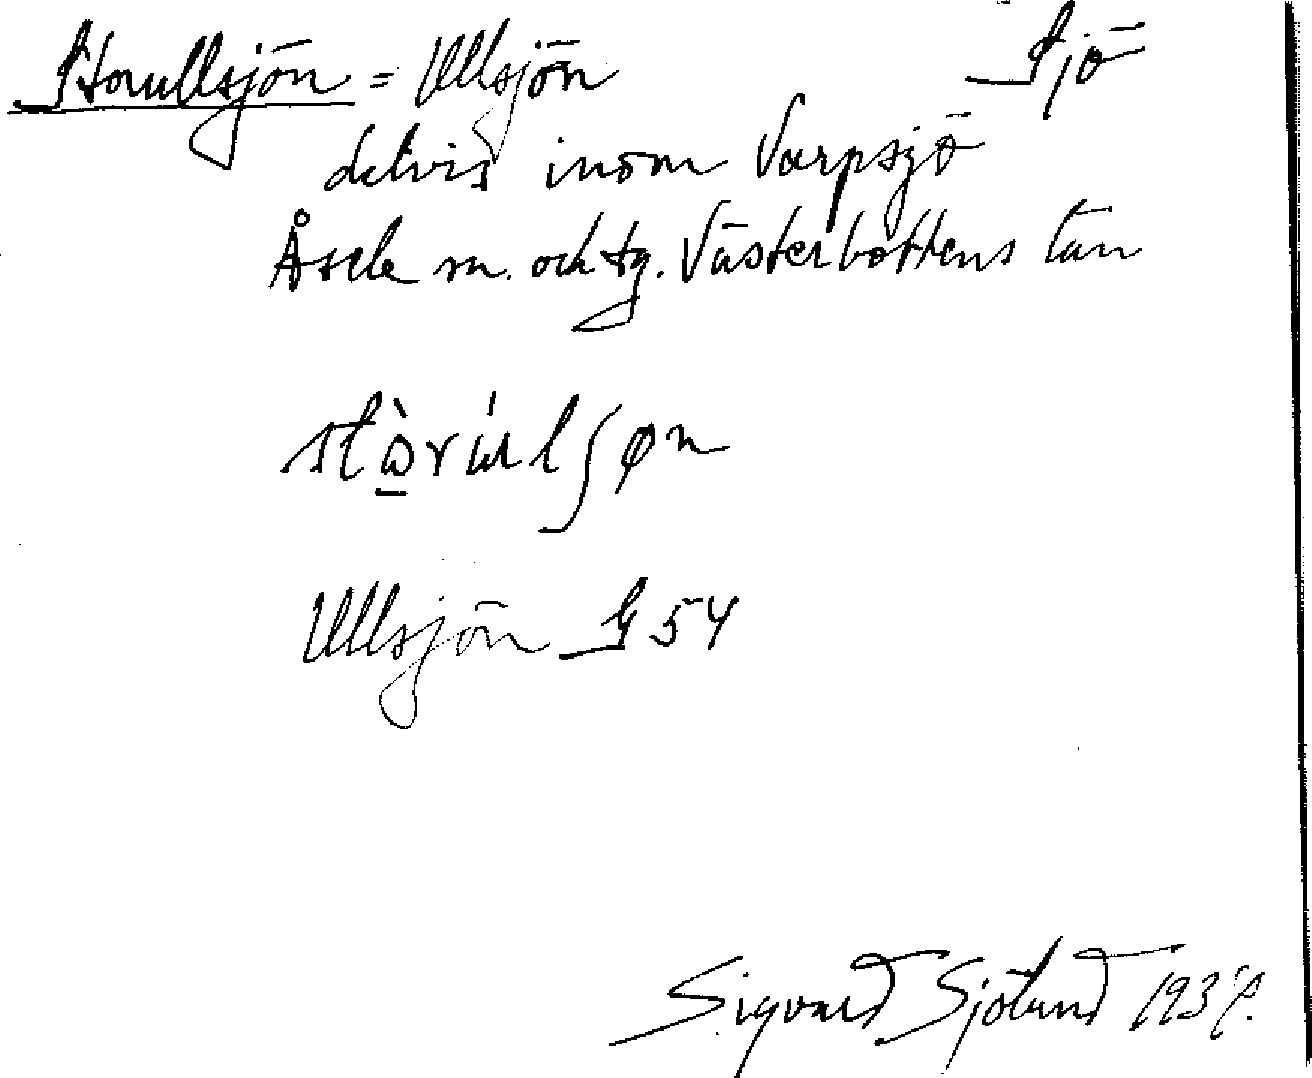 Storullsjön = Ullsjön Sjö
delvis inom Varpsjö
Åsele sn. och tg. Västerbottens län
Ullsjön G 54
Sigvard Sjölund